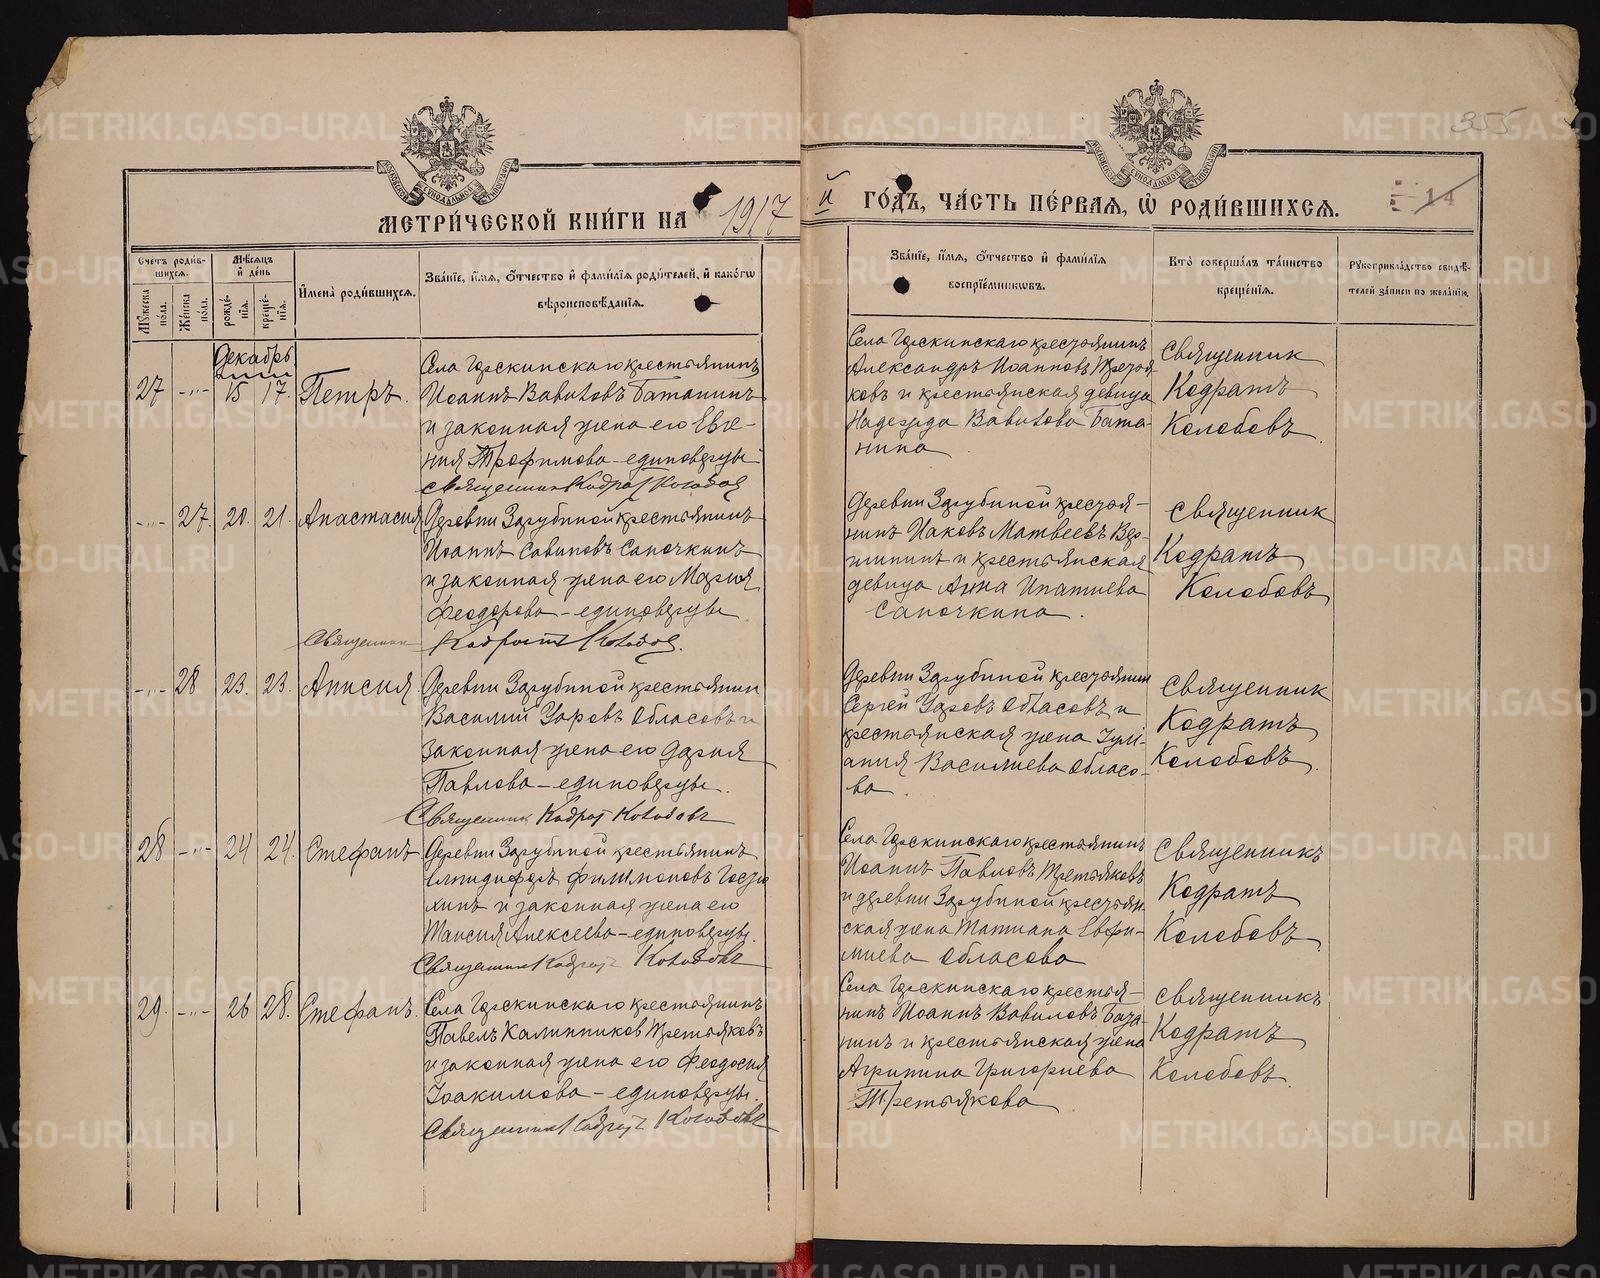 355
14
МЕТРИ́ЧЕСКОЙ КНИ́ГИ НА 1917 й ГО́ДЪ, ЧА́СТЬ ПЕ́РВАЯ, Ѽ РОДИ́ВШИХСЯ.
Счетъ роди́в-
шихся.
Мѣ́сяцъ
и҆ де́нь
Му́жеска по́ла.
Же́нска по́ла.
рожде́-
нїя.
креще́-
нїя.
И҆мена̀ роди́вшихся.
Зва́нїе, и҆́мя, о҆́тчество и҆ фами́лїя роди́телей, и҆ како́гѡ
вѣроисповѣ́данїя.
Зва́нїе, и҆́мя, о҆́тчество и҆ фами́лїя
воспрїе́мниковъ.
Кто̀ соверша́лъ та́инство
креще́нїя.
Рꙋкоприкла́дство свидѣ́-
телей за́писи по жела́нїю.
Декабрь
27 -„- 15 17. Петръ.
Села Горскинскаго крестьянинъ
Иоаннъ Вавиловъ Батанинъ
и законная жена его Евге-
ния Трофимова - единоверцы
Священник Кодрат Колобов
Села Горскинскаго крестьянинъ
Александръ Иоанновъ Третья
ковъ и крестьянская девица
Надежда Вавилова Бата-
нина
Священник
Кодратъ
Колобовъ.
-„- 27. 20. 21. Анастасия
Деревни Зарубиной крестьянинъ
Иоаннъ Савиновъ Сапочкинъ
и законная жена его Мария
Феодорова - единоверцы.
Священник Кодрат Колобов.
Деревни Зарубиной крестья-
нинъ Иаковъ Матвеевъ Вер-
шининъ и крестьянская
девица Анна Ипатиева
Сапочкина.
Священник
Кодратъ
Колобовъ
-„- 28 23. 23. Анисия.
Деревни Зарубиной крестьянин
Василий Уаровъ Обласовъ и
законная жена его Дария
Павлова - единоверцы.
Священник Кодрат Колобовъ
Деревни Зарубиной крестьянин
Сергей Уаровъ Обласовъ и
крестьянская жена Иули-
ания Василиева Обласо-
ва.
Священник
Кодратъ
Колобовъ.
28 -„- 24 24. Стефанъ
Деревни Зарубиной крестьянинъ
Елпидифоръ Филимоновъ
и законная жена его
Таисия Алексеева - единоверцы.
Священник Кодрат Колобовъ
Села Горскинскаго крестьянинъ
Иоаннъ Павловъ Третьяковъ
и деревни Зарубиной крестьян-
ская жена Татиана Евфи-
миева Обласова
Священникъ
Кодратъ
Колобовъ
29. -„- 26 28. Стефанъ.
Села Горскинскаго крестьянинъ
Павелъ Калинников Третьяковъ
и законная жена его Феодосия
Иоакимова - единоверцы.
Священник Кодрат Колобовъ
Села Горскинскаго крестья-
нинъ Иоаннъ Вавиловъ Бата-
нинъ и крестьянская жена
Агрипина Григориева
Третьякова
Священникъ
Кодратъ
Колобовъ.
METRIKI.GASO-URAL.RU